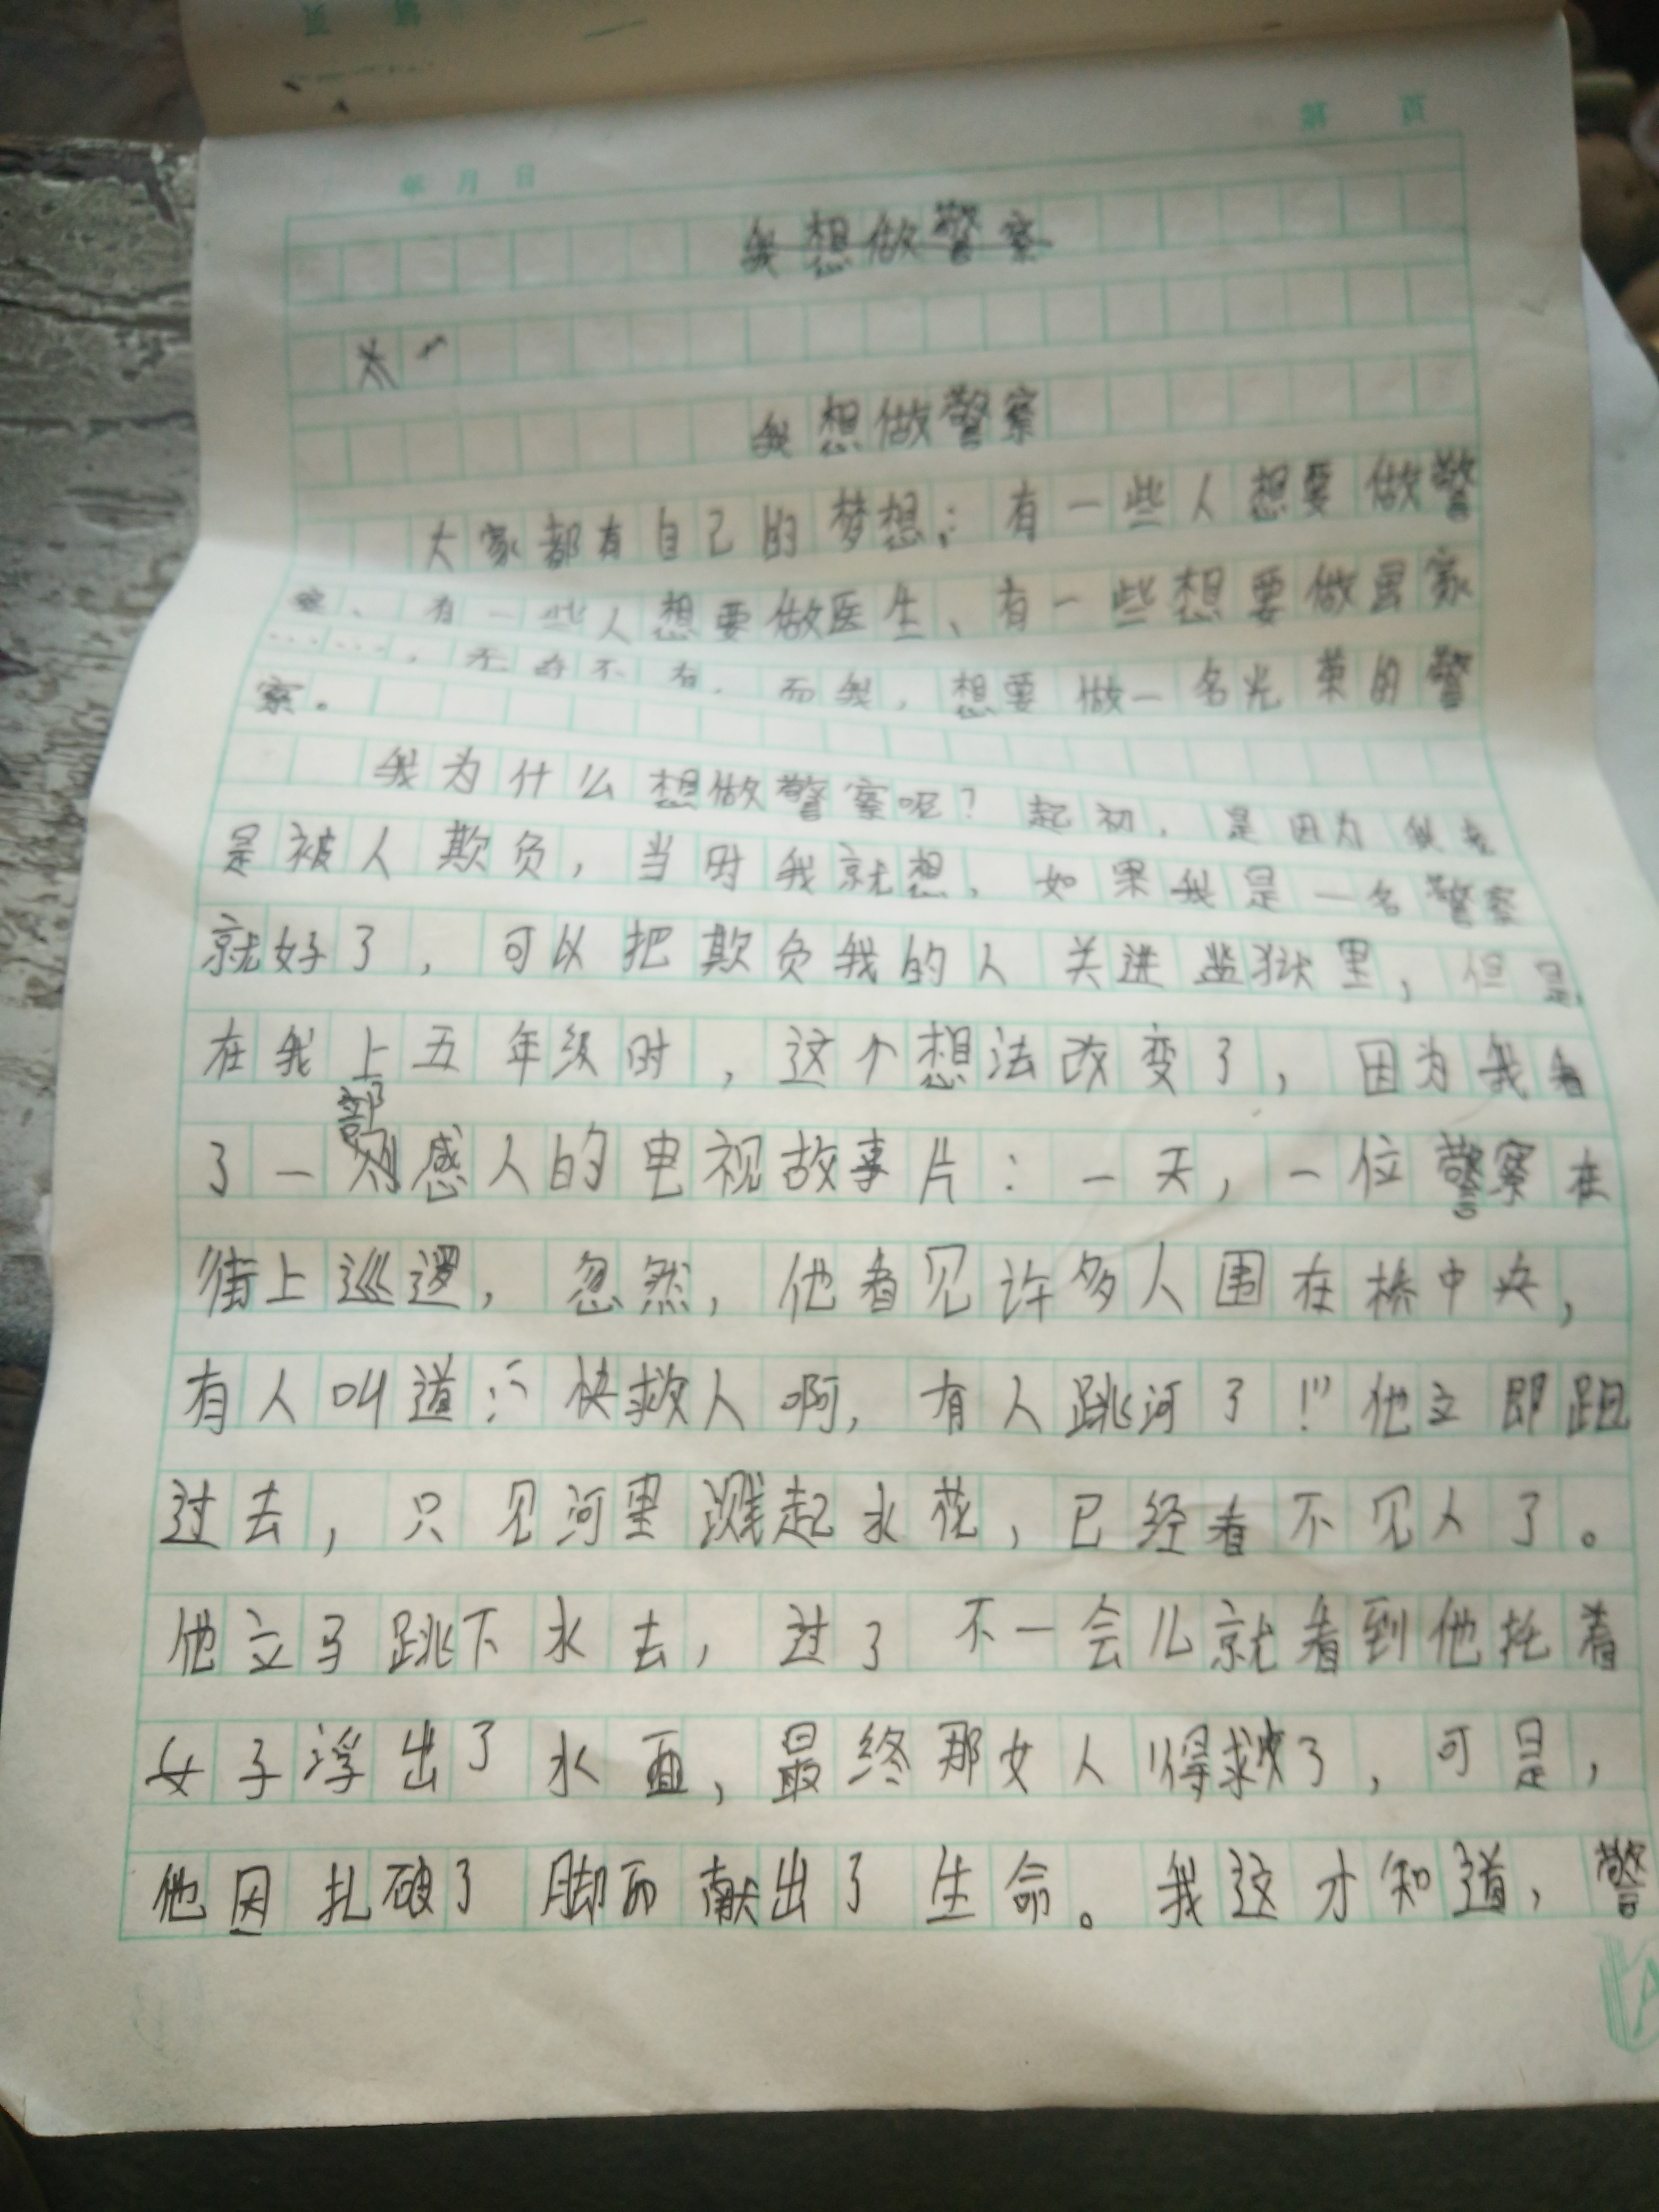 第 页
年 月 日
我想做警察
我想做警察
大家都有自己的梦想,:有一些人想要做警
察、有一些人想要做医生、有一些想要做画家
……,无奇不有,而我,想要做一名光荣的警
察。
我为什么想做警察呢?起初,是因为我老
是被人欺负,当时我就想,如果我是一名警察
就好了,可以把欺负我的人关进监狱里,但是
在我上五年级时,这个想法改变了,因为我看
部
了一则感人的电视故事片:一天,一位警察在
街上巡逻,忽然,他看见许多人围在桥中央,
有人叫道:“快救人啊,有人跳河了!”他立即跑
过去,只见河里溅起水花,已经看不见人了。
他立马跳下水去,过了不一会儿就看到他托着
女子浮出了水面,最终那女人得救了,可是,
他因扎破了脚而献出了生命。我这才知道,警